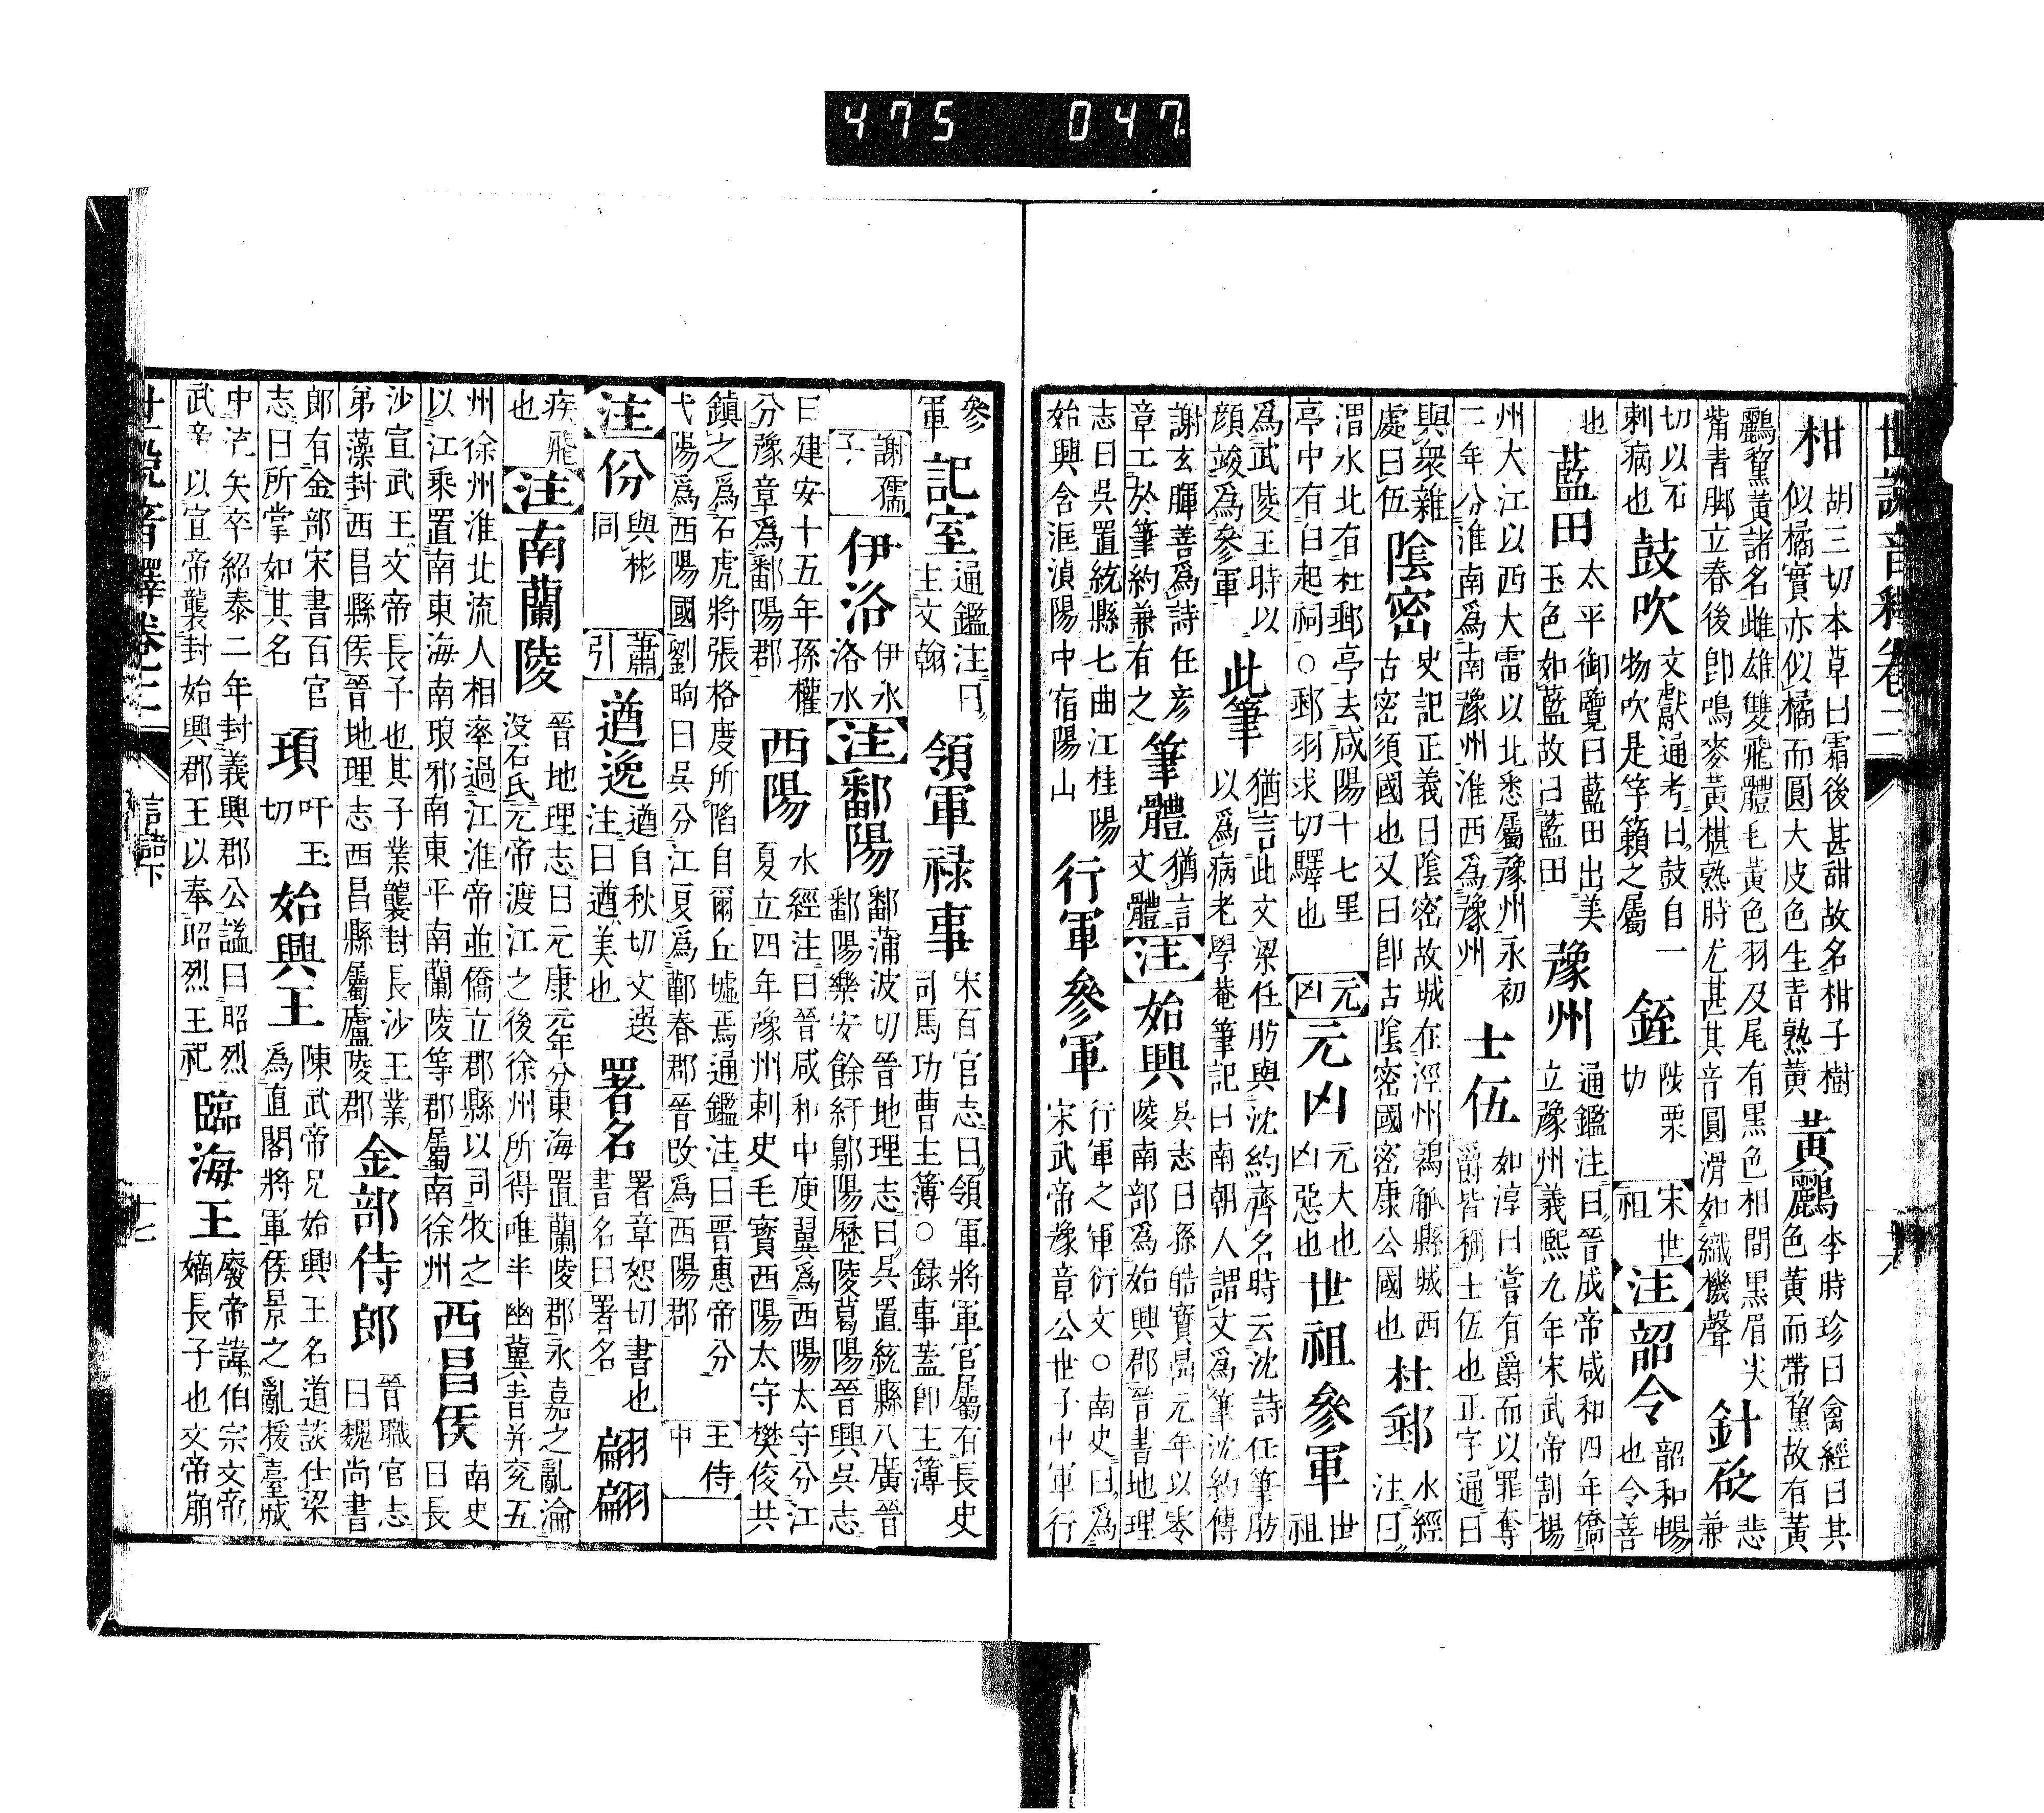 475 047.
世說音釋卷二
柑 胡三切本草曰霜後甚甜故名柑子樹似橘實亦似橘而圓大皮色生青熟黃 黃鸝 李時珍曰禽經曰其色黃而帶黧故有黃
鸝黧黃諸名雌雄雙飛體毛黃色羽及尾有黑色相間黑眉尖觜青脚立春後卽鳴麥黃椹熟時尤甚其音圓滑如織機聲 針砭 悲兼
切以石刺病也 鼓吹 文獻通考曰鼓自一物吹是竽籟之屬 銍 陟栗切 宋世祖 注 韶令 韶和暢也令善
也 藍田 太平御覽曰藍田出美玉色如藍故曰藍田 豫州 通鑑注曰晉成帝咸和四年僑立豫州義熙九年宋武帝割揚
州大江以西大雷以北悉屬豫州永初二年分淮南爲南豫州淮西爲豫州 士伍 如淳曰嘗有爵而以罪奪爵皆稱士伍也正字通曰
與衆雜處曰伍 陰密 史記正義曰陰密故城在涇州鶉觚縣城西古密須國也又曰卽古陰密國密康公國也 杜郵 水經注曰
渭水北有杜郵亭去咸陽十七里亭中有白起祠○郵羽求切驛也 元凶 元凶 元大也凶惡也 世祖參軍 世祖
爲武陵王時以顔竣爲參軍 此筆 猶言此文梁任昉與沈約齊名時云沈詩任筆昉以爲病老學菴筆記曰南朝人謂文爲筆沈約傳
謝玄暉善爲詩任彦章工於筆約兼有之 筆體 猶言文體 注 始興 吳志曰孫皓寶鼎元年以零陵南部爲始興郡晉書地理
志曰吳置統縣七曲江桂陽始興含洭湞陽中宿陽山 行軍參軍 行軍之軍衍文○南史曰爲宋武帝豫章公世子中軍行
參軍 記室 通鑑注曰主文翰 領軍禄事 宋百官志曰領軍將軍官屬有長史司馬功曹主簿○錄事蓋卽主簿
謝孺子 伊洛 伊水洛水 注 鄱陽 鄱蒲波切晉地理志曰吳置統縣八廣晉鄱陽樂安餘紆鄡陽歷陵葛陽晉興吳志
曰建安十五年孫權分豫章爲鄱陽郡 西陽 水經注曰晉咸和中庾翼爲西陽太守分江夏立四年豫州刺史毛寶西陽太守樊俊共
鎮之爲石虎將張格度所陷自爾丘墟焉通鑑注曰晉惠帝分弋陽爲西陽國劉昫曰吳分江夏爲鄿春郡晉改爲西陽郡 王侍中
注 份 與彬同 蕭引 遒逸 遒自秋切文選注曰遒美也 署名 署章恕切書也書名曰署名 翩翩
疾飛也 注 南蘭陵 晉地理志曰元康元年分東海置蘭陵郡永嘉之亂淪没石氏元帝渡江之後徐州所得唯半幽冀青并兖五
州徐州淮北流人相率過江淮帝並僑立郡縣以司牧之以江乘置南東海南琅邪南東平南蘭陵等郡屬南徐州 西昌侯 南史曰長
沙宣武王文帝長子也其子業襲封長沙王業弟藻封西昌縣侯晉地理志西昌縣屬廬陵郡 金部侍郎 晉職官志曰魏尚書
郎有金部宋書百官志曰所掌如其名 頊 吁玉切 始興王 陳武帝兄始興王名道談仕梁爲直閣將軍侯景之亂援臺城
中流矢卒紹泰二年封義興郡公謚曰昭烈武帝以宣帝襲封始興郡王以奉昭烈王祀 臨海王 廢帝諱伯宗文帝嫡長子也文帝崩
世說音釋卷二
言語下